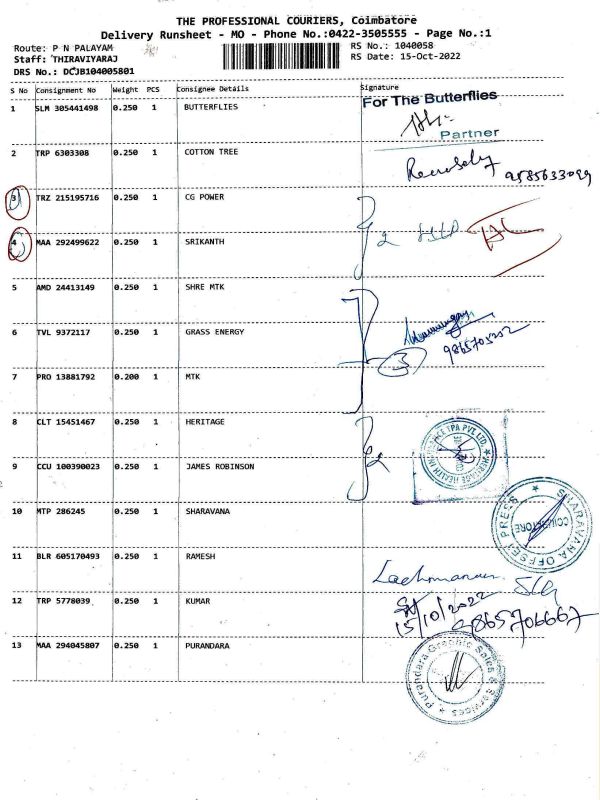 THE PROFESSIONAL COURIERS, Coimbatore
Delivery Runsheet - MO - Phone No.:0422-3505555 - Page No.:1
Route: P N PALAYAM
RS No.: 1040058
Staff: THIRAVIYARAJ
RS Date: 15-Oct-2022
DRS No.: DCJB104005801
S No Consignment No Weight PCS Consignee Details Signature
1 SLM 305441498 0.250 1 BUTTERFLIES
For The Butterflies
Partner
2 TRP 6303308 0.250 1 COTTON TREE
9585633099
3 TRZ 215195716 0.250 1 CG POWER
4 MAA 292499622 0.250 1 SRIKANTH
2
5 AMD 24413149 0.250 1 SHRE MTK
6 TVL 9372117 0.250 1 GRASS ENERGY
9865705202
3
7 PRO 13881792 0.200 1 MTK
8 CLT 15451467 0.250 1 HERITAGE
HERITAGE HEALTH INSURANCE TPA PVT LTD.
9 CCU 100390023 0.250 1 JAMES ROBINSON
2
10 MTP 286245 0.250 1 SHARAVANA
SHARAVANA OFFSET PRESS
COIMBATORE
11 BLR 605170493 0.250 1 RAMESH
12 TRP 5778039 0.250 1 KUMAR
15/10/2022
9865706667
13 MAA 294045807 0.250 1 PURANDARA
Purandara Graphic Sales & Services